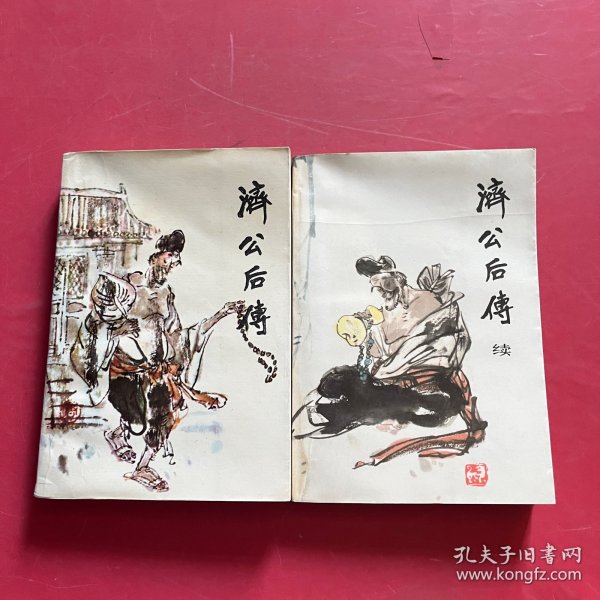 濟公后傳
濟公后傳
续
孔夫子旧书网
www.kongfz.com